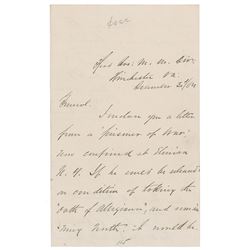 Winchester Va.
December 20/64
General.
I enclose you a letter
from a "prisoner of War"
now confined at Elmira
N. Y. If he can be released
on condition of taking the
"oath of Allegiance", and remain
"away North", it would be